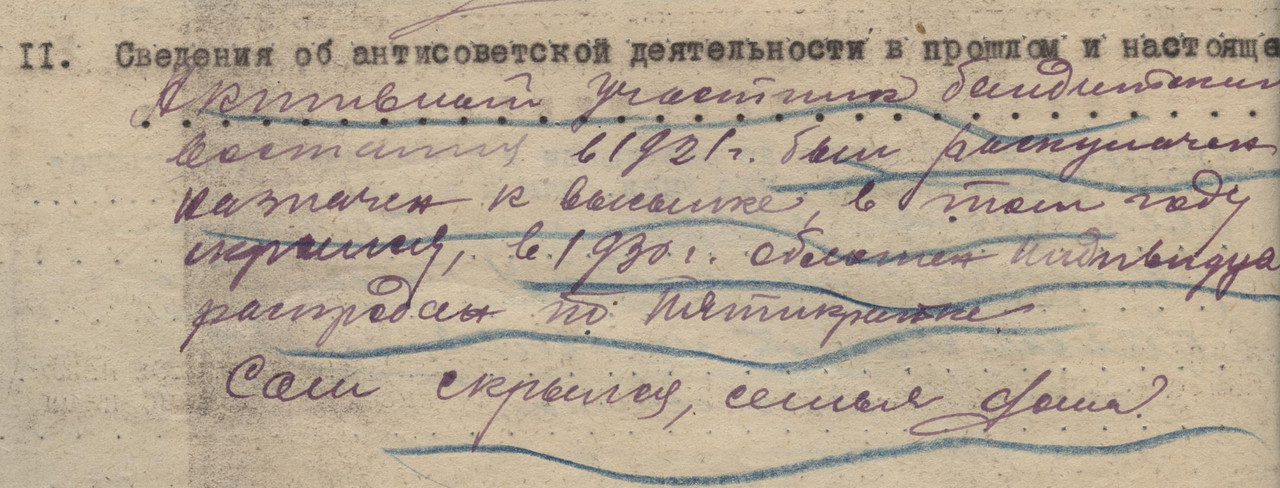 II. Сведения об антисоветской деятельности в прошлом и настояще
Активный участник бандитским
востания в 1921 г. был раскулачен
назначен к высылке, в том году
скрылся, в 1930 г. обложен индивидуа
распродан по пятикратке
Сам скрылся, семья дома.